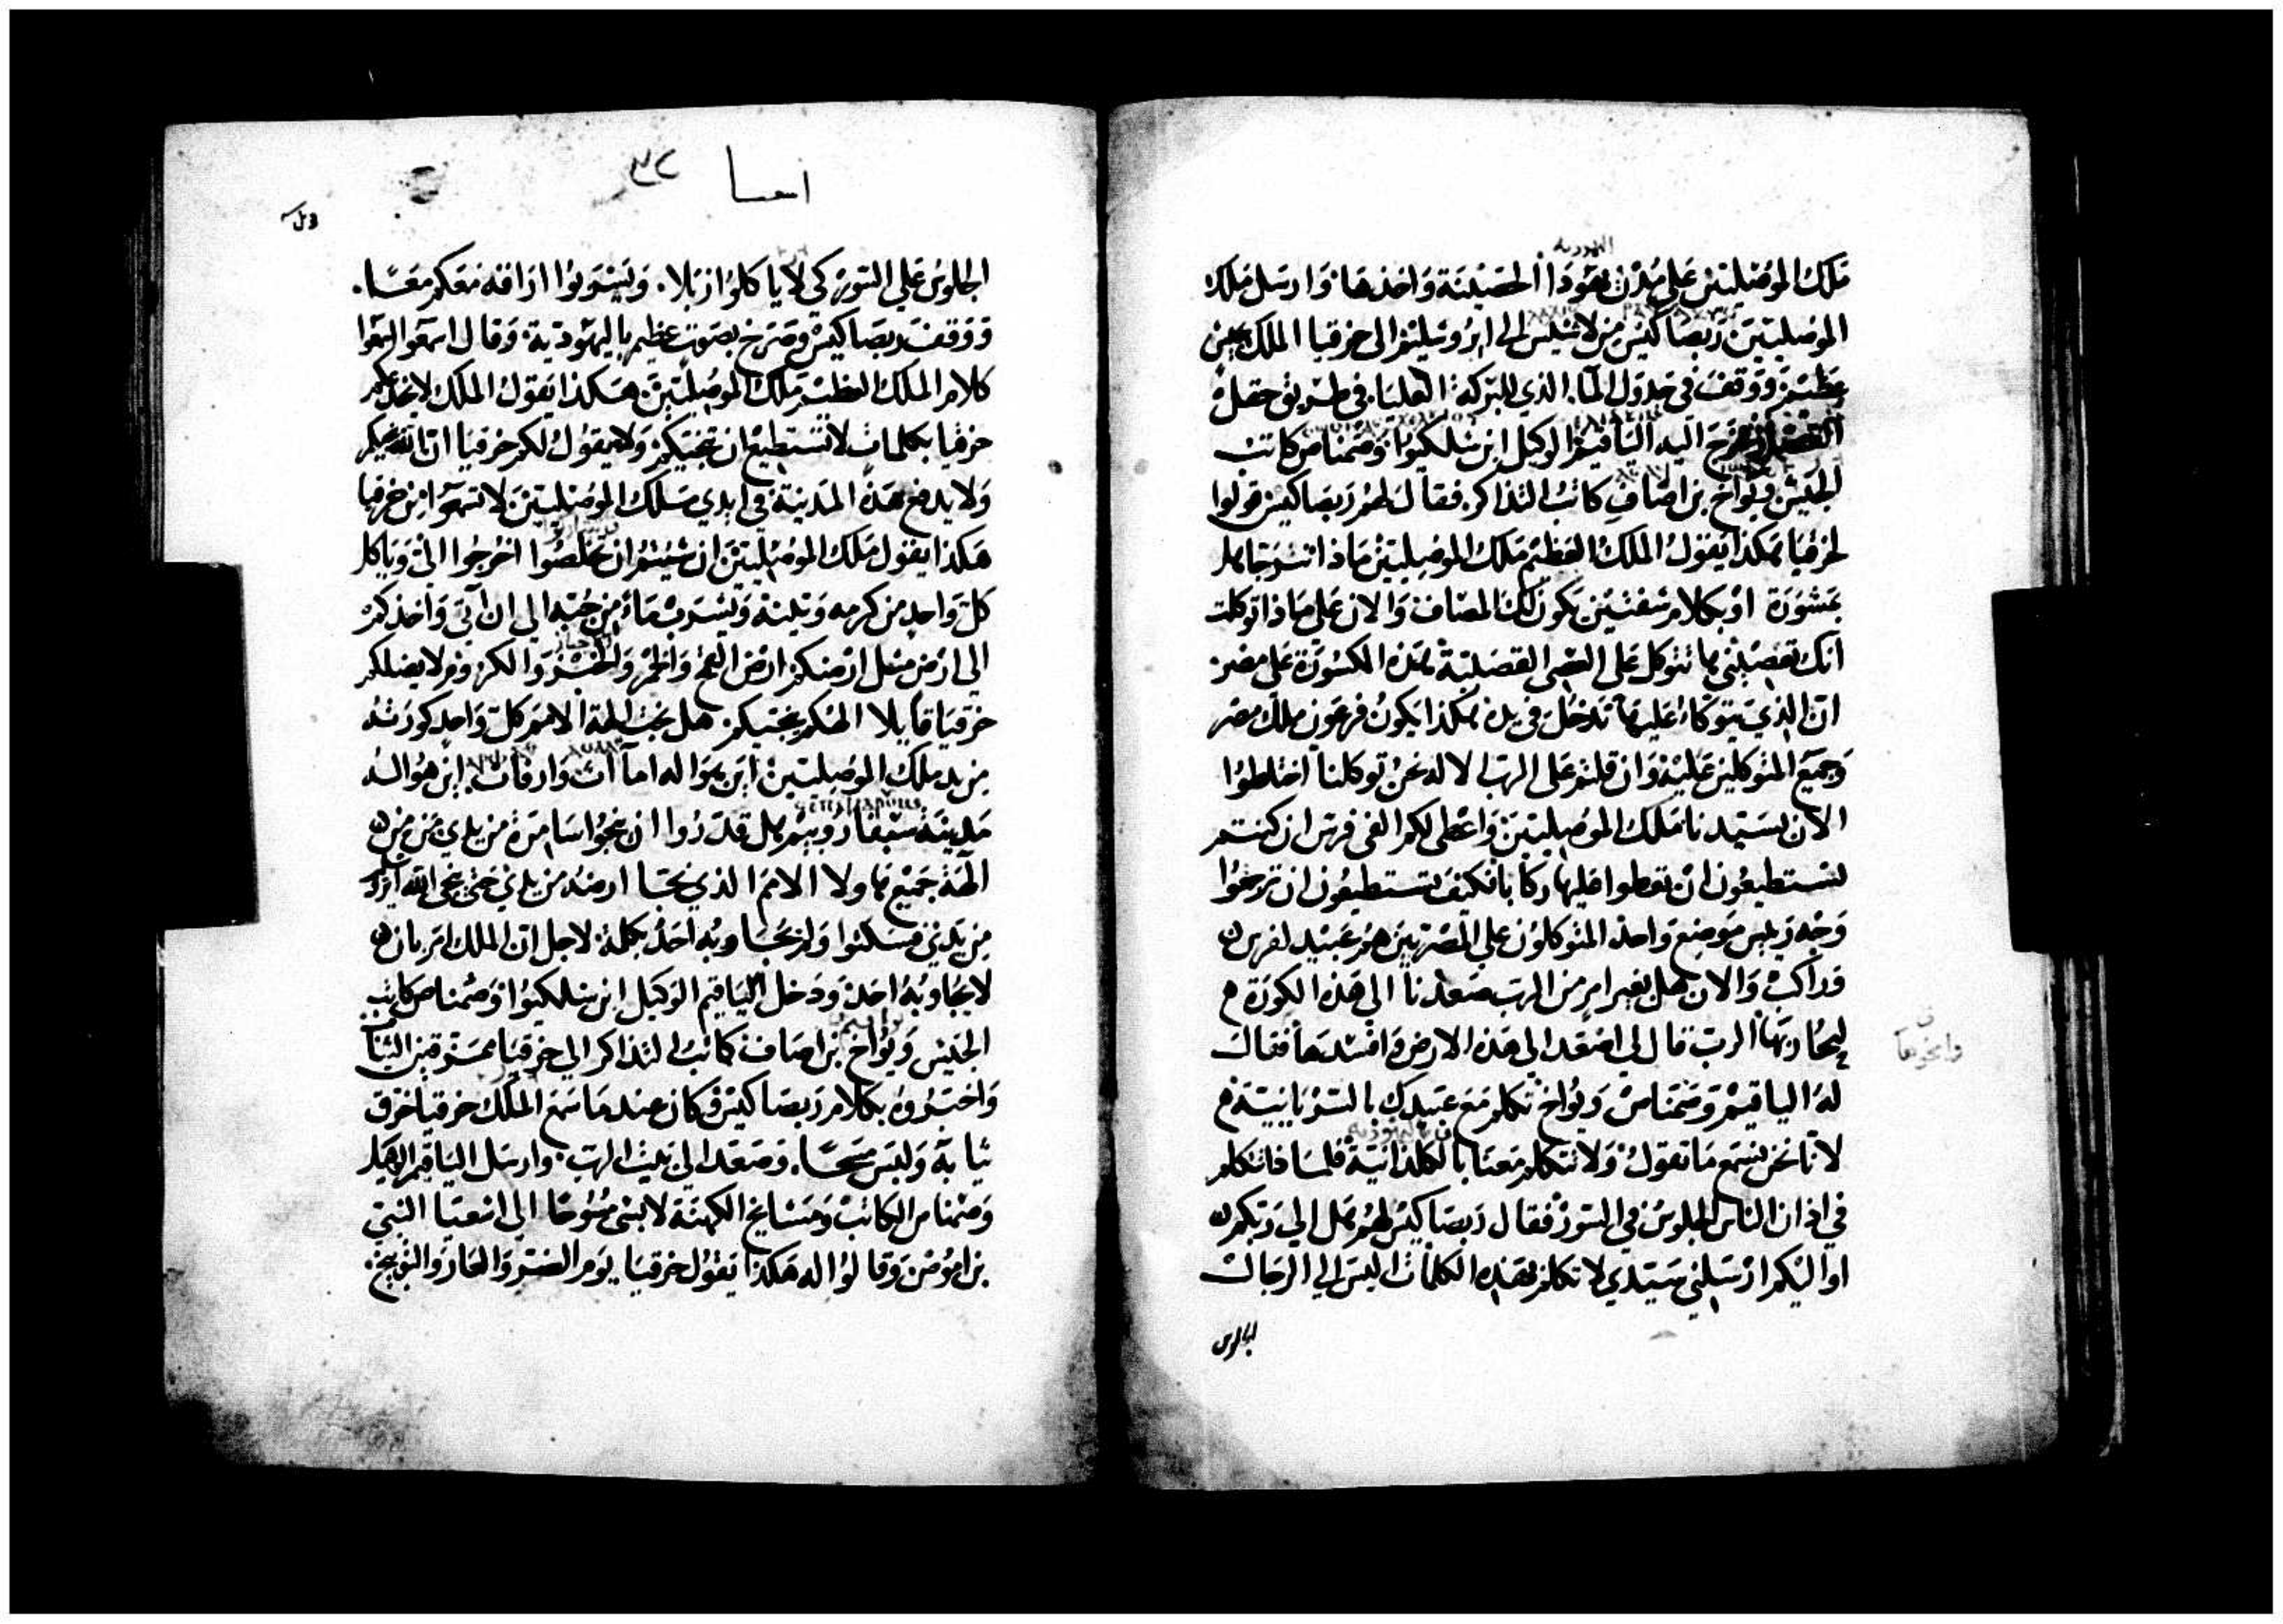 اليهودية
ملك الموصليين على مدن يهودا الحصينة واخذها وارسل ملك
الموصليين ربصاكيس من لاخيس الى ايروسليم الى حزقيا الملك بجيش
عظيم ووقف في جدول الما الذي للبركة العليا في طريق حقل
القصار فخرج اليه الياقيم الوكيل ابن سلكيوا وصمناص كاتب
الجيش ويواخ بن اصاف كاتب التذاكر فقال لهم ربصاكيس قولوا
لحزقيا هكذا يقول الملك العظيم ملك الموصليين ماذا انت
بمشورة او بكلام شفتين يكون لك المصاف والان على ماذا توكلت
انك تعصيني ها تتوكل على العصى القصبية هذه المكسورة على مصر
ان الذي يتوكا عليها تدخل في يده هكذا يكون فرعون ملك مصر
وجميع المتوكلين عليه وان قلتم على الرب الاله نحن توكلنا اختلطوا
الان بسيدنا ملك الموصليين واعطى لكم الفى فرس ان كنتم
تستطيعون ان تعطوا عليها ركابا فكيف تستطيعون ان ترجعوا
وجه رييس موضع واحد المتوكلون على المصريين هم عبيد لفرس
وراكب والان هل بغير امر من الرب صعدنا الى هذه الكورة
ليحاربها الرب قال لي اصعد الى هذه الارض وافسدها فقال
له الياقيم وصمناص ويواخ تكلم مع عبيدك بالسريانية
لاننا نحن نسمع ما تقول ولا تتكلم معنا بالكلدانية فلماذا تتكلم
في اذان الناس الجلوس في السور فقال ربصاكيس لهم هل الى ربكم
او اليكم ارسلني سيدي لاتكلم بهذه الكلمات اليس الى الرجال
الجلوس
اشعيا ٣٢
الجلوس على السور كي لا ياكلوا زبلا ويشربوا اراقة معكم معا
ووقف ربصاكيس وصرخ بصوت عظيم باليهودية وقال اسمعوا
كلام الملك العظيم ملك الموصليين هكذا يقول الملك لا يخدعكم
حزقيا بكلمات لا تستطيع ان تنجيكم ولا يقول لكم حزقيا ان الله ينجيكم
ولا يدفع هذه المدينة في ايدي ملك الموصليين لا تسمعوا من حزقيا
هكذا يقول ملك الموصليين ان شيتم ان تخلصوا اخرجوا الى وياكل
كل واحد من كرمه وتينه ويشرب ماء من جبه الى ان اتى واخذكم
الى ارض مثل ارضكم ارض القمح والخمر والخبز والكروم لا يضلكم
حزقيا قايلا الهكم ينجيكم هل نجت الهة الامم كل واحد كورته
من يد ملك الموصليين اين هو اله اماث وارفاث اين هو اله
مدينة سبفارويم هل قدروا ان ينجوا سامرة من يدي من من
الهة جميع هاولا الامم الذي نجا ارضه من يدي حتى ينجى الله
من يدي فسكتوا ولم يجاوبه احد بكلمة لاجل ان الملك امر بان
لا يجاوبه احد ودخل الياقيم الوكيل ابن سلكيوا وصمناص كاتب
الجيش ويواخ بن اصاف كاتب التذاكر الى حزقيا ممزقين الثياب
واخبروه بكلام ربصاكيس فكان عندما سمع الملك حزقيا خرق
ثيابه ولبس مسحا وصعد الى بيت الرب وارسل الياقيم
وصمناس الكاتب ومشايخ الكهنة لابسي مسوحا الى اشعيا النبي
بن اموص وقالوا له هكذا يقول حزقيا يوم الضر والعار والتوبيخ